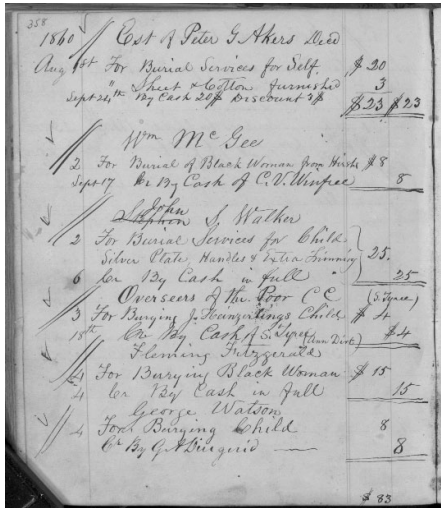 358
1860 Est of Peter G Akers Decd
Aug 1st For Burial Services for Self $20
Sheet & Cotton furnished 3
Sept 24th By Cash 20$ Discount 3$ $23 $23
Wm McGee
2 For Burial of Black Woman from $8
Sept 17 Cr By Cash of C. V. Winfree 8
John
Stephen S. Walker
2 For Burial Services for Child
Silver Plate, Handles & Extra Trimming 25.
6 Cr By Cash in full 25
Overseers of the Poor C C (S. Tyree)
3 For Burying J. Child $4
18th Cr By Cash of S. Tyree $4
Fleming Fitzgerald
4 For Burying Black Woman $15
4 Cr By Cash in full 15
George Watson
4 For Burying Child 8
Cr By 8
$83